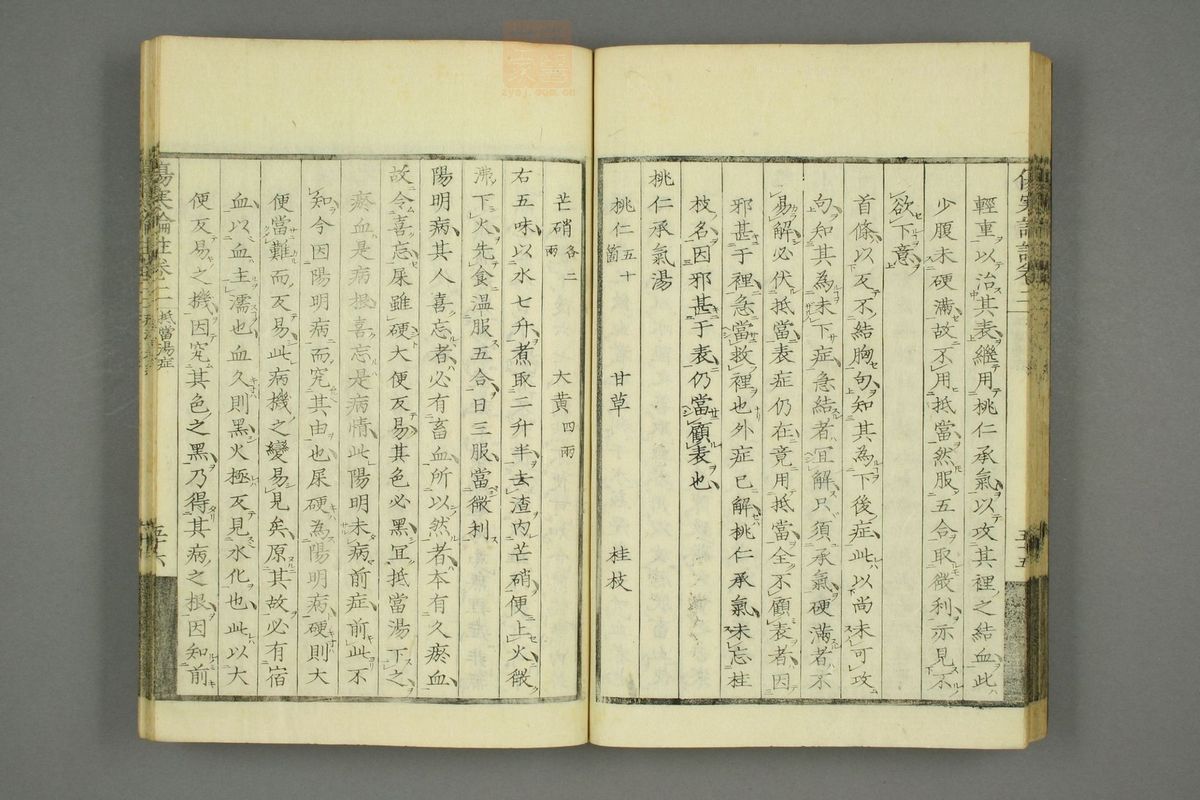 輕重以治其表繼用桃仁承氣以攻其裡之結血此
少腹未硬滿故不用抵當然服五合取微利亦見不
欲下意
首條以反不結胸句知其為下後症此以尚未可攻
句知其為未下症急結者宜解只須承氣硬滿者不
易解必伏抵當表症仍在竟用抵當全不顧表者因
邪甚于裡急當救裡也外症已解桃仁承氣未忘桂
枝名因邪甚于表仍當顧表也
桃仁承氣湯
桃仁五十箇 甘草 桂枝
芒硝各二兩 大黃四兩
右五味以水七升煮取二升半去渣內芒硝便上火微
沸下火先食温服五合日三服當微利
陽明病其人喜忘者必有畜血所以然者本有久瘀血
故令喜忘屎雖硬大便反易其色必黑宜抵當湯下之
瘀血是病根喜忘是病情此陽明未病前症前此不
知今因陽明病而究其由也屎硬為陽明病硬則大
便當難而反易此病機之變易見矣原其故必有宿
血以血主濡也血久則黑火極反見水化也此以大
便反易之機因究其色之黑乃得其病之根因知前
傷寒論註卷二 抵當湯症